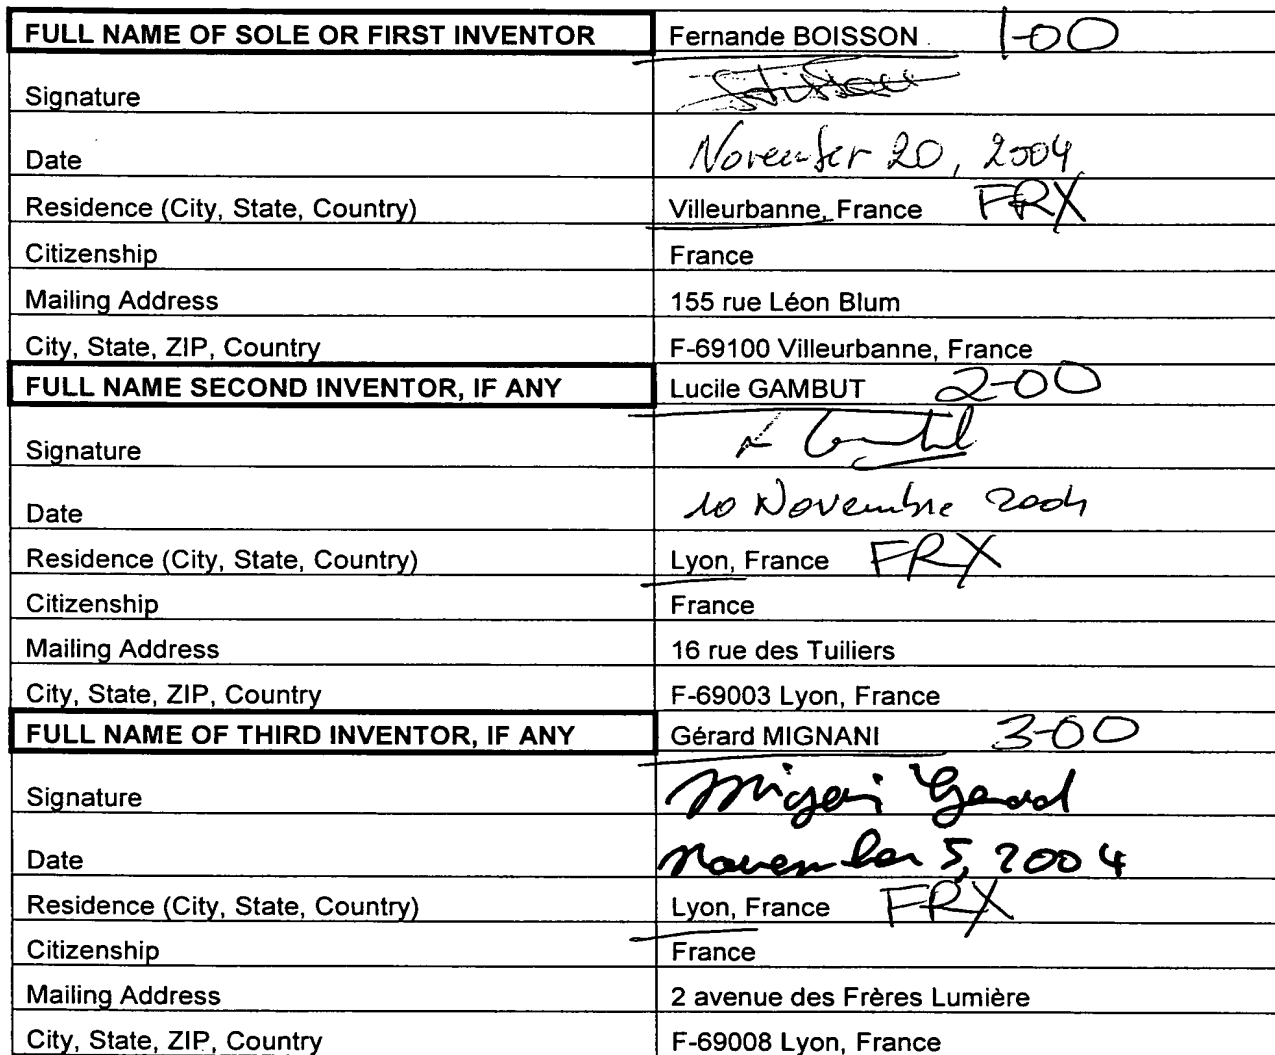 FULL NAME OF SOLE OR FIRST INVENTOR Fernande BOISSON 1-00
Signature
Date November 20, 2004
Residence (City, State, Country) Villeurbanne, France FRX
Citizenship France
Mailing Address 155 rue Léon Blum
City, State, ZIP, Country F-69100 Villeurbanne, France
FULL NAME SECOND INVENTOR, IF ANY Lucile GAMBUT 2-00
Signature
Date 10 Novembre 2004
Residence (City, State, Country) Lyon, France FRX
Citizenship France
Mailing Address 16 rue des Tuiliers
City, State, ZIP, Country F-69003 Lyon, France
FULL NAME OF THIRD INVENTOR, IF ANY Gérard MIGNANI 3-00
Signature
Date November 5, 2004
Residence (City, State, Country) Lyon, France FRX
Citizenship France
Mailing Address 2 avenue des Frères Lumière
City, State, ZIP, Country F-69008 Lyon, France